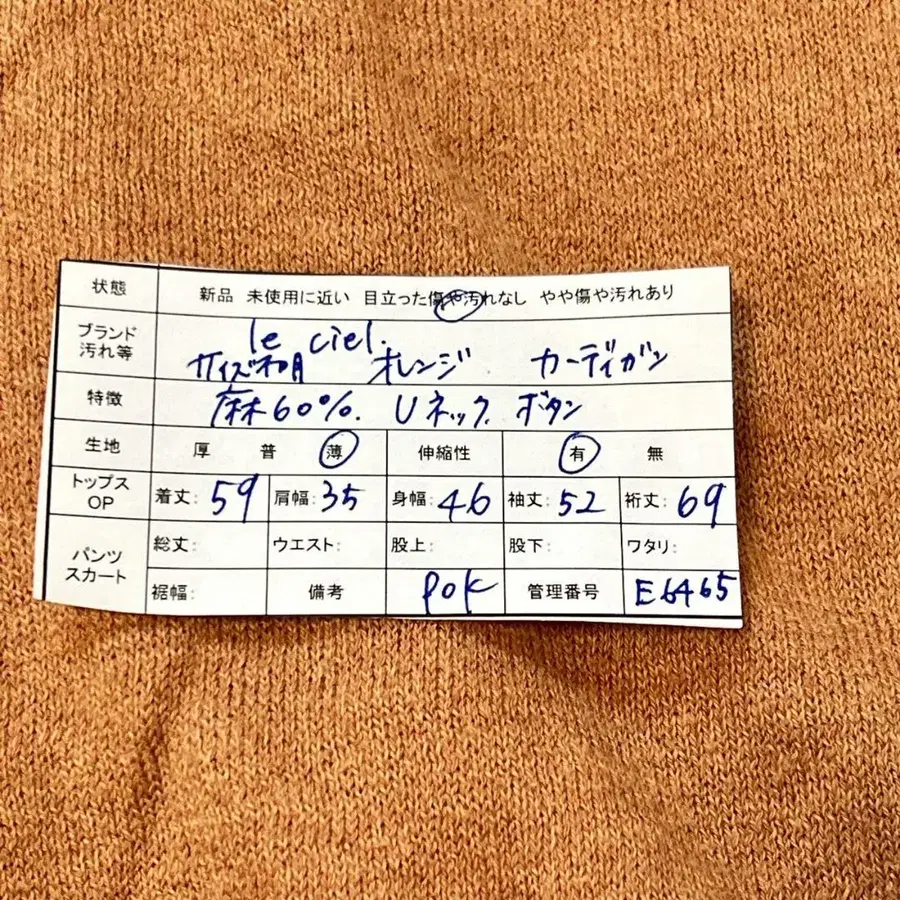 状態 新品 未使用に近い 目立った傷や汚れなし やや傷や汚れあり
ブランド 汚れ等 le ciel.
サイズ不明 オレンジ カーディガン
特徴 麻60%. Uネック. ボタン
生地 厚 普 薄 伸縮性 有 無
トップス OP 着丈: 59 肩幅: 35 身幅: 46 袖丈: 52 裄丈: 69
パンツ スカート 総丈: ウエスト: 股上: 股下: ワタリ:
裾幅: 備考 Pok 管理番号 E6465